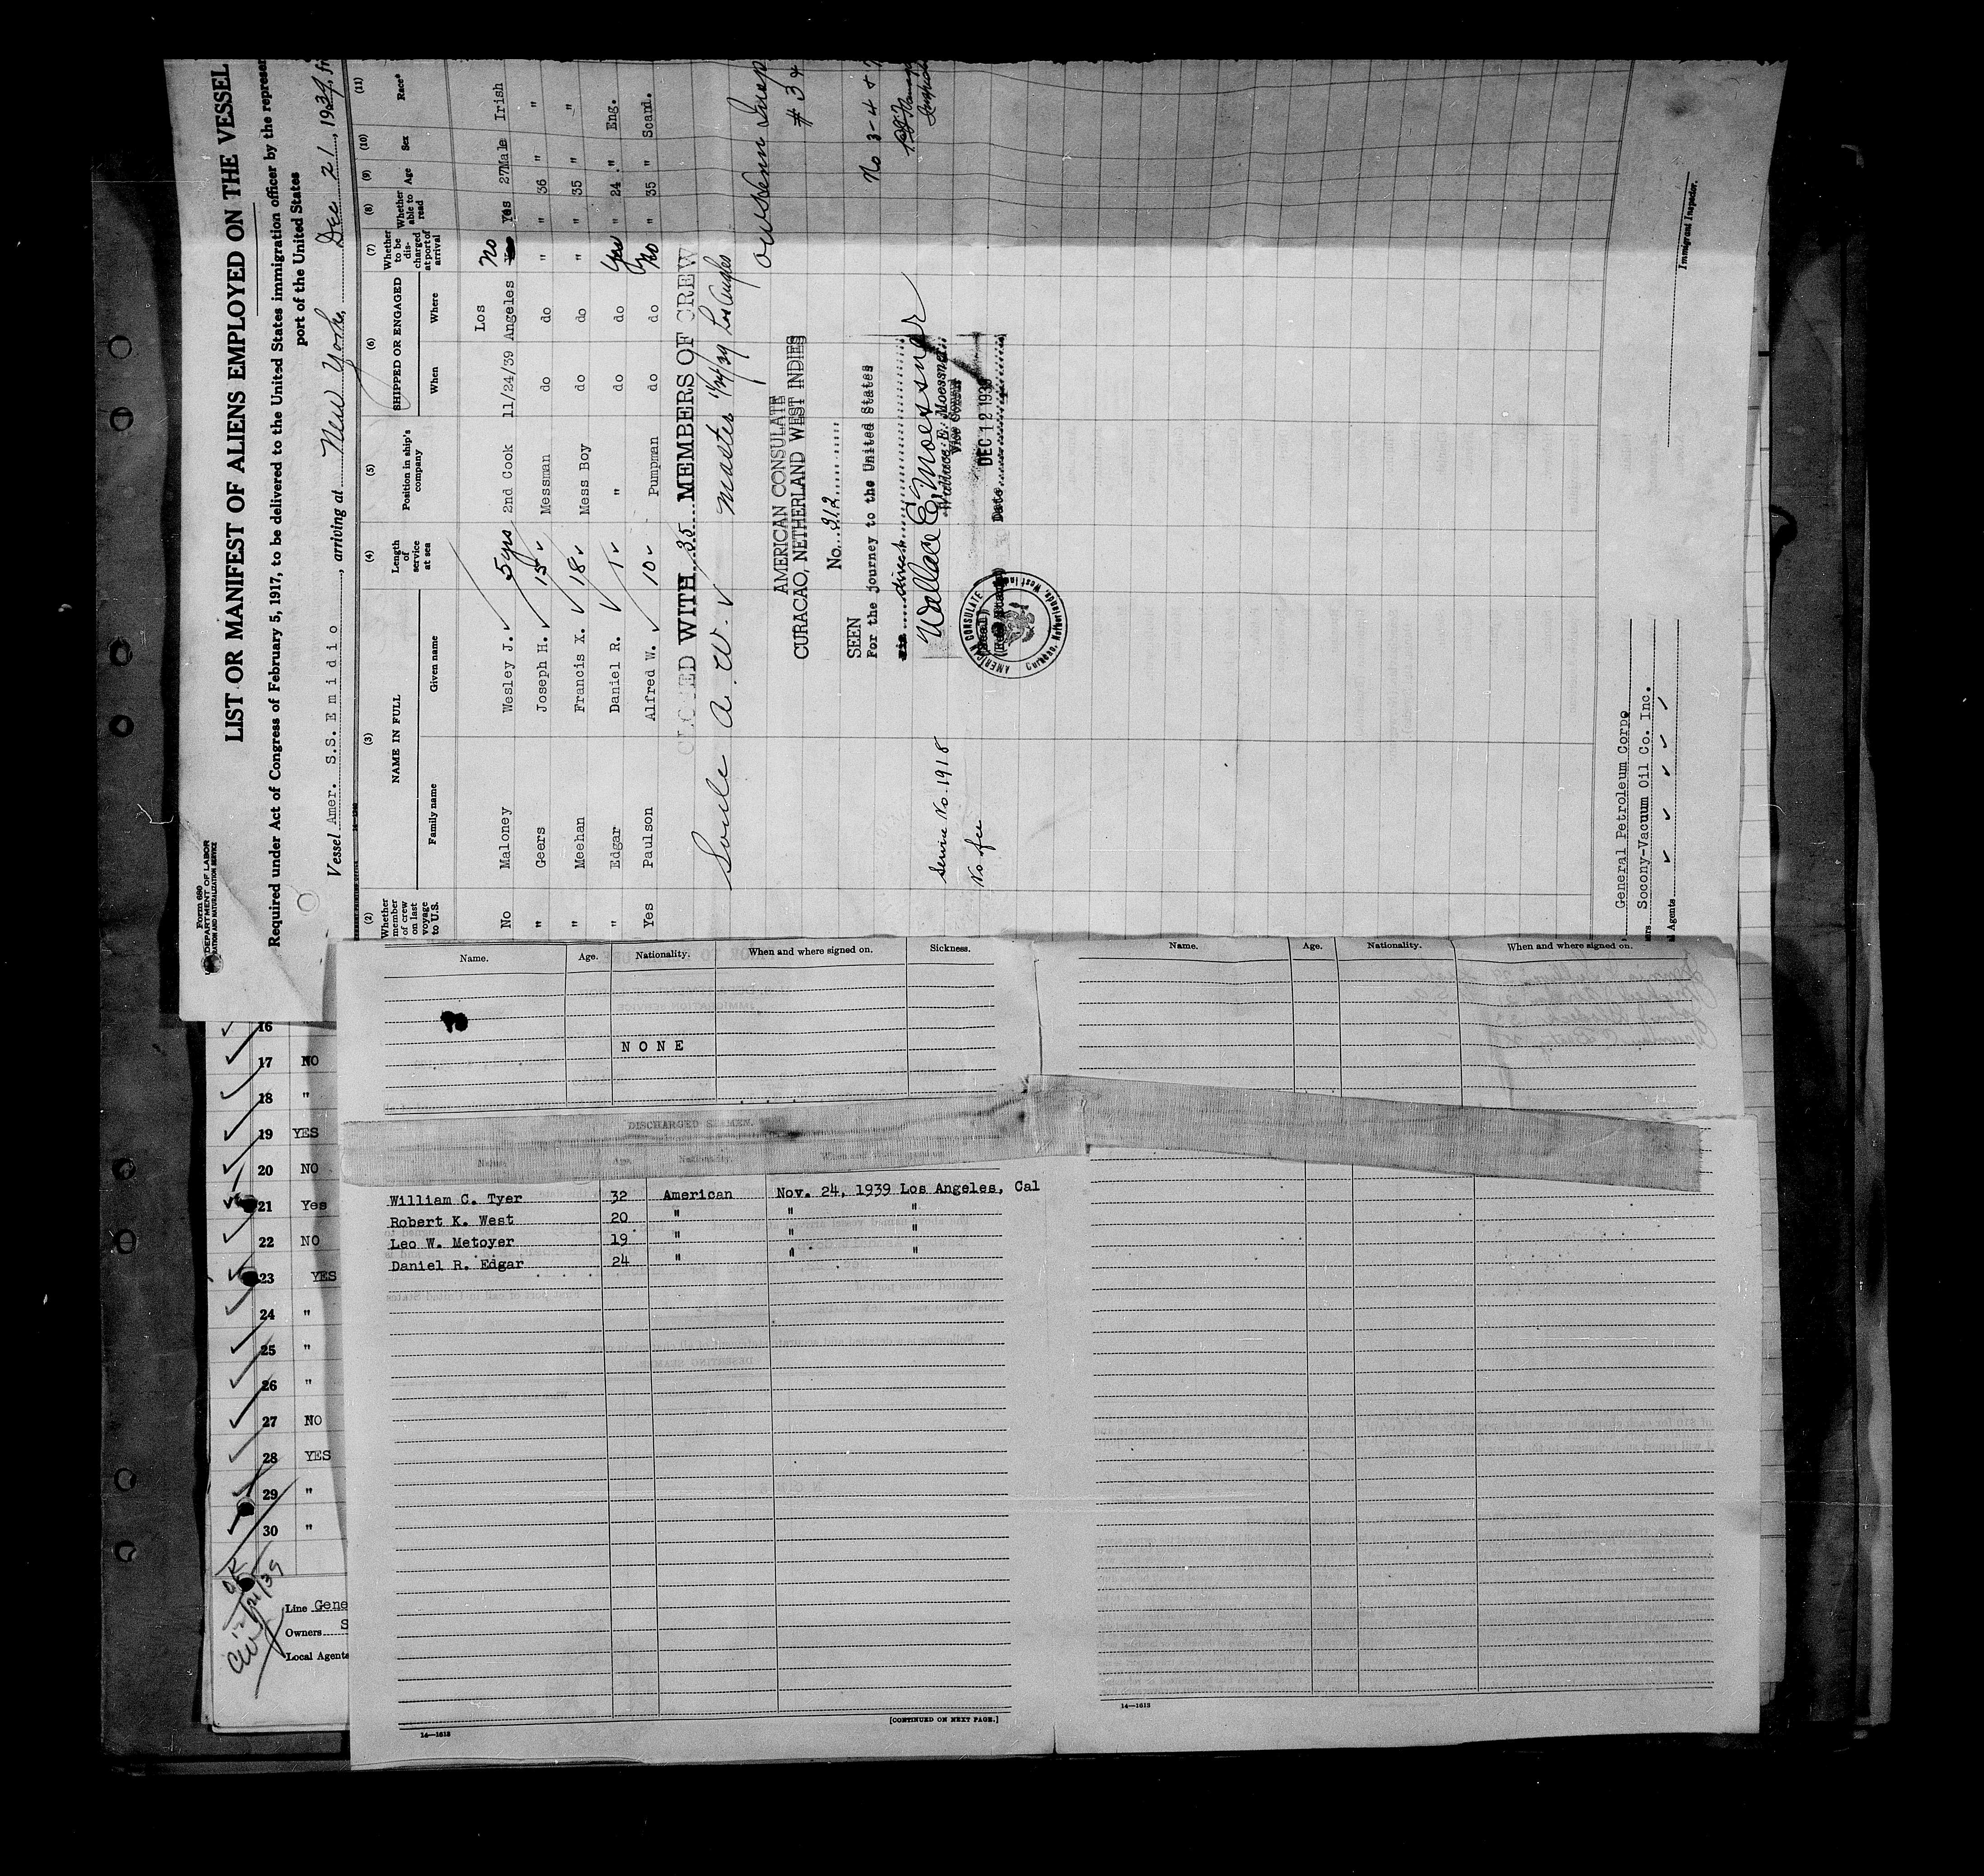 Form 680
DEPARTMENT OF LABOR
LIST OR MANIFEST OF ALIENS EMPLOYED ON THE VESSEL
Required under Act of Congress of February 5, 1917, to be delivered to the United States immigration officer by the
port of the United States
Vessel Amer. S.S. Emidio, arriving at New York, Dec 21, 1939,
(2) (3) (4) (5) (6) (7) (8) (9) (10) (11)
Whether member of crew on last voyage to U.S. NAME IN FULL Length of service at sea Position in ship's company SHIPPED OR ENGAGED Whether to be discharged at port of arrival Whether able to read Age Sex Race*
Family name Given name When Where
Los
No Maloney Wesley J. 5 yrs 2nd Cook 11/24/39 Angeles No Yes 27 Male Irish
" Geers Joseph H. 15 Messman do do " " 36 " "
" Meehan Francis X. 18 Mess Boy do do " " 35 " "
" Edgar Daniel R. 1 " do do Yes " 24 " Eng.
Yes Paulson Alfred W. 10 Pumpman do do No " 35 " Scand.
CLOSED WITH 35 MEMBERS OF CREW
Soule A. W. Master 11/24/39 Los Angeles
#34
AMERICAN CONSULATE
CURACAO, NETHERLAND WEST INDIES
No. 312
No 3-4
SEEN
For the journey to the United States
via direct
Wallace E. Moessner
Wallace E. Moessner
Vice Consul
Service No. 1918
No fee
Date DEC 12 1939
AMERICAN CONSULATE
Curacao, Netherlands, West Indies
General Petroleum Corp.
Socony-Vacuum Oil Co. Inc.
Agents
Immigrant Inspector.
16
17 NO
18 "
19 YES
20 NO
21 Yes
22 NO
23 YES
24 "
25 "
26 "
27 NO
28 YES
29 "
30 "
OK
12/21/39
Line Gene
Owners S
Local Agents
Name. Age. Nationality. When and where signed on. Sickness.
NONE
DISCHARGED SEAMEN.
Name. Age. Nationality. When and where signed on.
William C. Tyer 32 American Nov. 24, 1939 Los Angeles, Cal
Robert K. West 20 " " "
Leo W. Metoyer 19 " " "
Daniel R. Edgar 24 " " "
14—1613
[CONTINUED ON NEXT PAGE.]
Name. Age. Nationality. When and where signed on.
14—1613